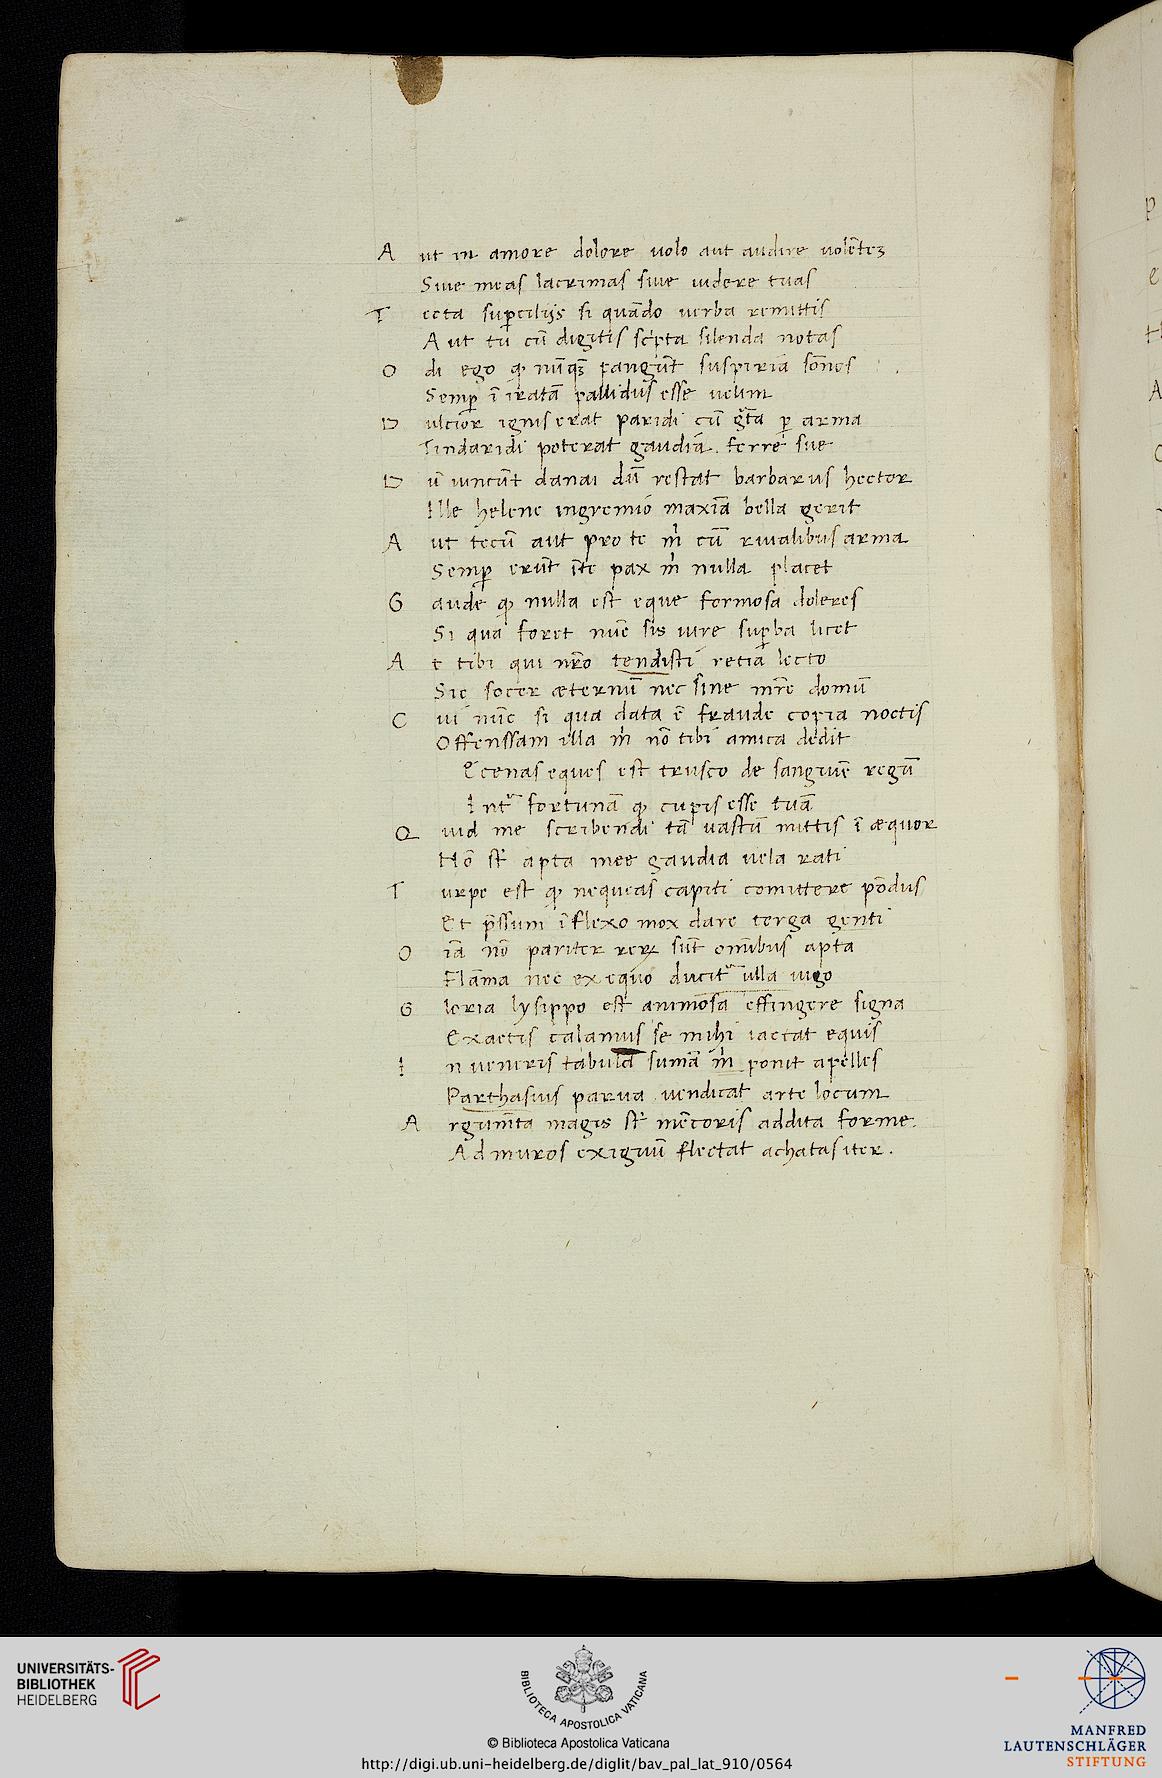 A ut in amore dolore uolo aut audire uolẽtez
Siue meas lacrimas siue uidere tuas
T ecta suꝑcilijs si quãdo uerba remittis
Aut tu cũ digitis scⁱpta silenda notas
O di ego ꝙ nũꝗꝫ pangũt suspiria sõnos
Semꝑ ĩ iratã pallidus esse uelim
D ulcior ignis erat paridi cũ gͣta ꝑ arma
Tindaridi poterat gaudia. ferre sue
D ũ uincũt danai dũ restat barbarus hector
Ille helene ingremio maxĩa bella gerit
A ut tecũ aut pro te mⁱ cũ riualibus arma
Semꝑ erũt ĩte pax mⁱ nulla placet
G aude ꝙ nulla est eque formosa doleres
Si qua foret nũc sis iure suꝑba licet
A t tibi qui nr̃o tendisti retia lecto
Sic socer æternũ nec sine mr̃e domũ
C ui nũc si qua data ẽ fraude copia noctis
Offenssam illa mⁱ nõ tibi amica dedit
Ecenas eques est trusco de sanguine regũ
Intͣ fortunã ꝙ cupis esse tuã
Q uid me scribendi tã uastũ mittis ĩ æquor
Nõ st̃ apta mee gaudia uela rati
T urpe est ꝙ nequeas capiti comittere põdus
Et p̃ssum ĩflexo mox dare terga genti
O ĩa nõ pariter reꝝ sũt omĩbus apta
Flãma nec ex equo ducitͬ ulla iugo
G loria lysippo est animõsa effingere signa
Exactis calamus se mihi iactat equis
I n ueneris tabula sumã mⁱ ponit apelles
Parthasius parua uendicat arte locum
A rgumẽta magis st̃ mẽtoris addita forme.
Ad muros exiguũ flectat achatas iter.
UNIVERSITÄTS-
BIBLIOTHEK
HEIDELBERG
BIBLIOTECA APOSTOLICA VATICANA
© Biblioteca Apostolica Vaticana
http://digi.ub.uni-heidelberg.de/diglit/bav_pal_lat_910/0564
MANFRED
LAUTENSCHLÄGER
STIFTUNG